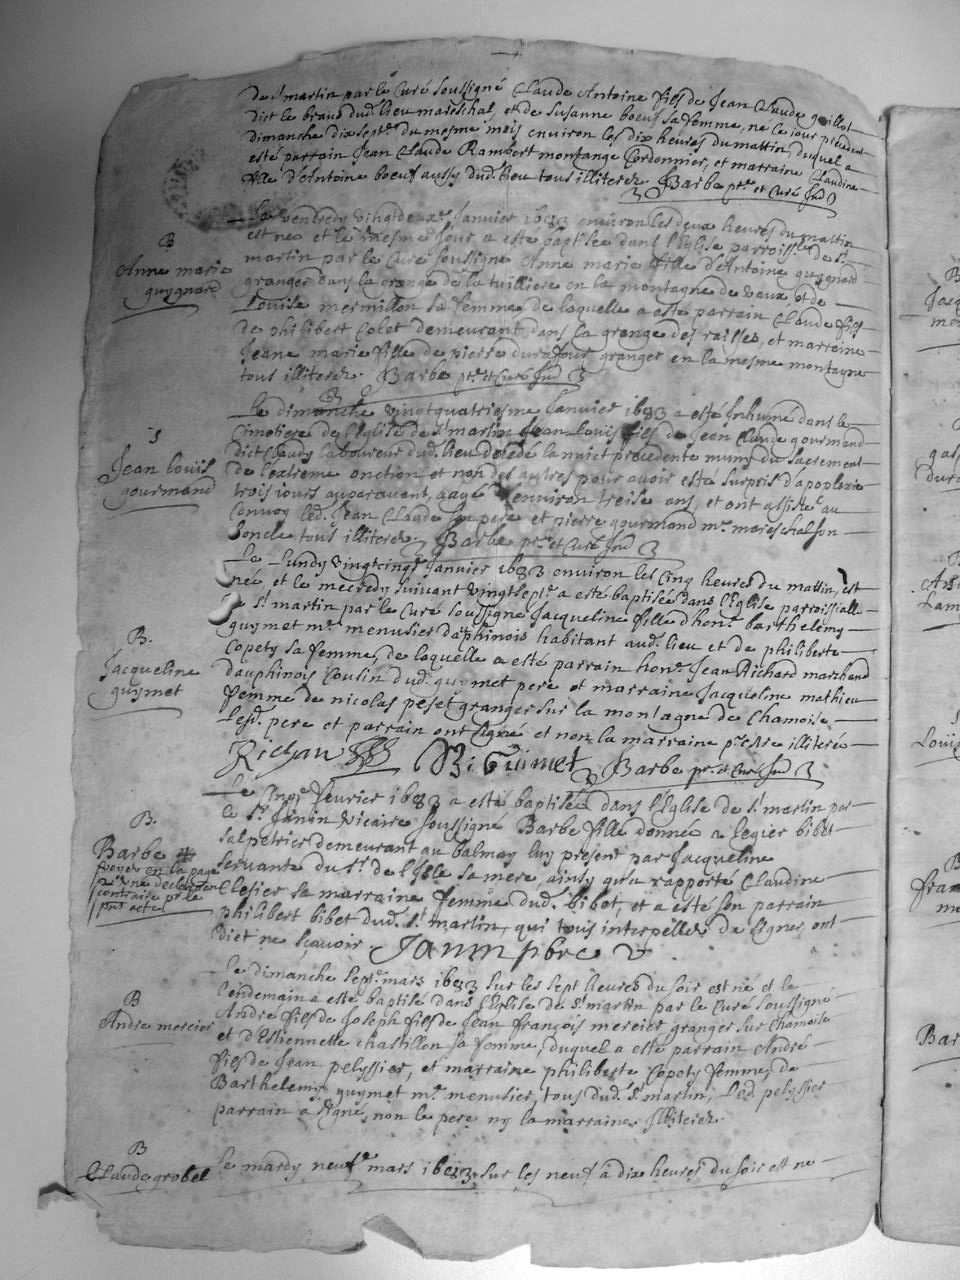 De St martin par le Curé soussigné Claude Antoine fils de Jean Claude guillot
dict le braud dud. lieu mareschal, et de Susanne boeuf sa femme, né le jour précédent
dimanche dix sept.e du mesme mois environ les dix heures du mattin, duquel a
esté parrain Jean Claude Rambert montange Cordonnier, et marraine Claudine
fille d'Antoine boeuf aussy dud. lieu tous illiterez Barbe ptre et Curé
B
Anne marie
guygnard
Le vendredy vingtdeux.e Janvier 1683 environ les deux heures du mattin
est née et le mesme jour a esté baptisée dans l'Eglise parroiss.le de St
martin par le Curé soussigné Anne marie fille d'Antoine guygnard
granger dans la grange de la tuilliere en la montagne de vaux et de
Louise mermillon sa femme de laquelle a esté parrain Claude fils
de philibert Colet demeurant dans la grange des railles, et marraine
Jeane marie fille de pierre durafour granger en la mesme montagne
tous illiterez. Barbe ptre et Curé
S
Jean Louis
gourmand
Le dimanche vingtquatriesme Janvier 1683 a esté Inhumé dans le
Cimetiere de l'Eglise de St martin Jean Louis fils de Jean Claude gourmand
dict Claudy laboureur dud. lieu decedé la nuict precedente muny du sacrement
de l'extreme onction et non des autres pour avoir esté surpris d'apoplexie
trois jours auparavant, aagé environ treise ans, et ont assisté au
Convoy led. Jean Claude son pere et pierre gourmand m.e mareschal son
oncle tous illiterez Barbe ptre et Curé
B.
Jacqueline
guymet
Le Lundy vingtcinq.e Janvier 1683 environ les Cinq heures du mattin, est
née et le mecredy suivant vingtsept.e a esté baptisée dans l'Eglise parroissialle
de St martin par le Curé soussigné Jacqueline fille d'hon.e barthelemy
guymet m.e menusier daphinois habitant aud. lieu et de philiberte
Copety sa femme, de laquelle a esté parrain hon.e Jean Richard marchand
dauphinois Cousin dud. guymet pere et marraine Jacqueline mathieu
femme de nicolas peset granger sur la montagne de Chamoise
lesd. pere et parrain ont signé et non la marraine p.r estre illiteré
Richar B. Guimet Barbe ptre et Curé
B.
Barbe
voyes en la page
declaration
contraire pr le
pnt acte
Le février 1683 a esté baptisée dans l'Eglise de St martin par
le Sr Janin Vicaire soussigné Barbe fille donnée a legier bibet
salpetrier demeurant au balmay luy present par Jacqueline
servante du Sr de l'Isle sa mere ainsy qu'a rapporté Claudine
Clesier sa marraine femme dud. bibet, et a esté son parrain
philibert bibet dud. St martin, qui tous interpellez de signer ont
dict ne sçavoir Janin pbre
B
Andre mercier
Le dimanche sept.e mars 1683 sur les sept heures du soir est né et le
lendemain a esté baptisé dans l'Eglise de St martin par le Curé soussigné
Andre fils de Joseph fils de Jean françois mercier granger sur Chamoise
et d'Estiennette chastillon sa femme, duquel a esté parrain André
fils de Jean pelyssier, et marraine philiberte Copety femme de
Barthelemy guymet m.e menusier, tous dud. St martin, led. pelyssier
parrain a signé, non le pere ny la marraine Illiterez.
B
Claude grobel
Le mardy neuf.e mars 1683 sur les neuf à dix heures du soir est né